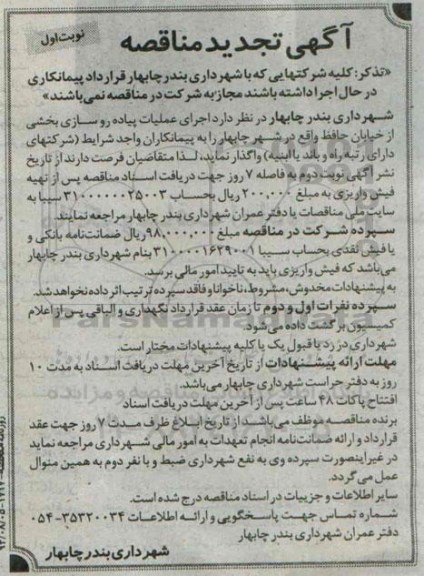 نوبت اول
آگهی تجدید مناقصه
«تذکر: کلیه شرکتهایی که با شهرداری بندر چابهار قرارداد پیمانکاری
در حال اجرا داشته باشند مجاز به شرکت در مناقصه نمی‌باشند»
شهرداری بندر چابهار در نظر دارد اجرای عملیات پیاده رو سازی بخشی
از خیابان حافظ واقع در شهر چابهار را به پیمانکاران واجد شرایط (شرکتهای
دارای رتبه راه و باند یا ابنیه) واگذار نماید، لذا متقاضیان فرصت دارند از تاریخ
نشر آگهی نوبت دوم به فاصله ۷ روز جهت دریافت اسناد مناقصه پس از تهیه
فیش واریزی به مبلغ ۲۰۰,۰۰۰ ریال بحساب ۳۱۰۰۰۰۰۰۲۵۰۰۳ سیبا به
سایت ملی مناقصات یا دفتر عمران شهرداری بندر چابهار مراجعه نمایند.
سپرده شرکت در مناقصه مبلغ ۹۸,۰۰۰,۰۰۰ ریال ضمانت‌نامه بانکی و
یا فیش نقدی بحساب سیبا ۳۱۰۰۰۰۱۶۲۹۰۰۱ بنام شهرداری بندر چابهار
می‌باشد که فیش واریزی باید به تایید امور مالی برسد.
به پیشنهادات مخدوش، مشروط، ناخوانا و فاقد سپرده ترتیب اثر داده نخواهد شد.
سپرده نفرات اول و دوم تا زمان عقد قرارداد نگهداری و الباقی پس از اعلام
کمیسیون برگشت داده می‌شود.
شهرداری در رد یا قبول یک یا کلیه پیشنهادات مختار است.
مهلت ارائه پیشنهادات از تاریخ آخرین مهلت دریافت اسناد به مدت ۱۰
روز به دفتر حراست شهرداری چابهار می‌باشد.
افتتاح پاکات ۴۸ ساعت پس از آخرین مهلت دریافت اسناد
برنده مناقصه موظف می‌باشد از تاریخ ابلاغ ظرف مدت ۷ روز جهت عقد
قرارداد و ارائه ضمانت‌نامه انجام تعهدات به امور مالی شهرداری مراجعه نماید
در غیر اینصورت سپرده وی به نفع شهرداری ضبط و با نفر دوم به همین منوال
عمل می گردد.
سایر اطلاعات و جزییات در اسناد مناقصه درج شده است.
شماره تماس جهت پاسخگویی و ارائه اطلاعات ۳۵۳۲۰۰۳۴-۰۵۴
دفتر عمران شهرداری بندر چابهار
شهرداری بندر چابهار
ParsNamadData